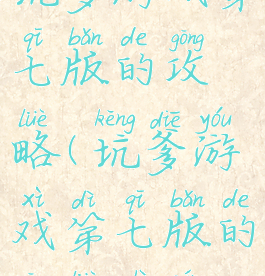 坑爹游戏第
qī bǎn de gōng
七版的攻
lüè kēng diē yóu
略(坑爹游
xì dì qī bǎn de
戏第七版的